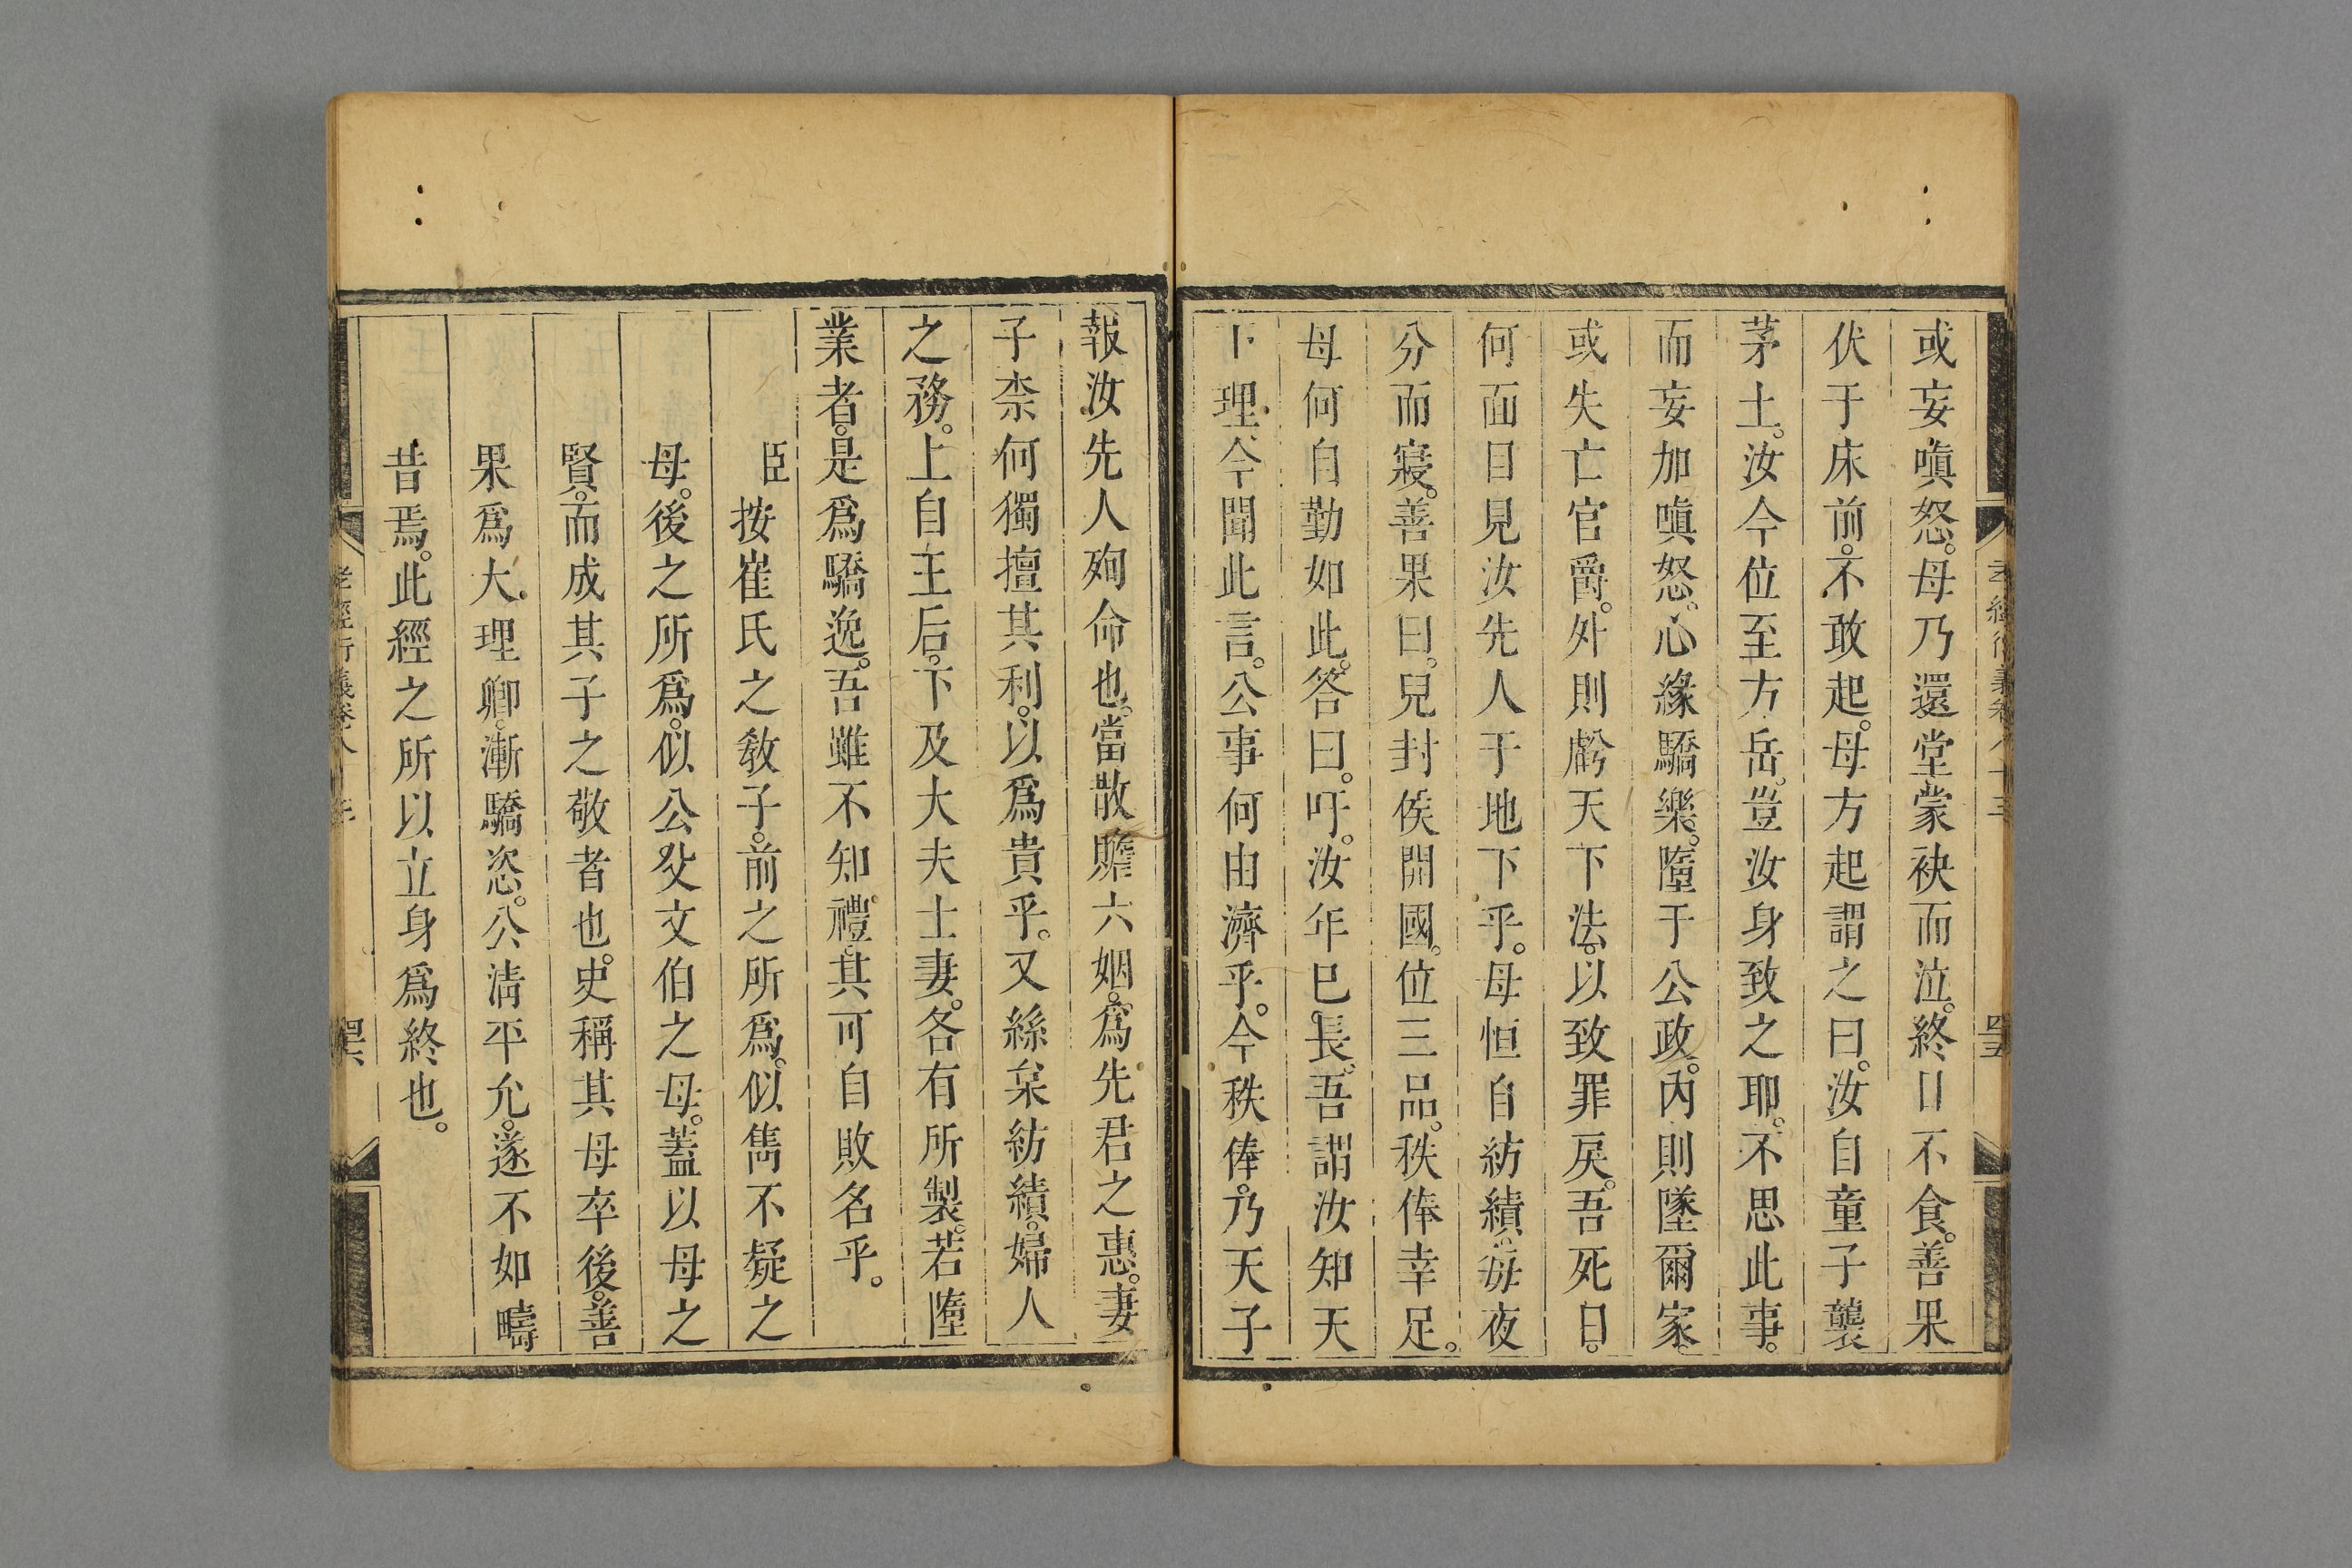 或妄嗔怒。母乃還堂蒙袂而泣。終日不食。善果
伏于床前。不敢起。母方起謂之曰。汝自童子襲
茅土。汝今位至方岳。豈汝身致之耶。不思此事。
而妄加嗔怒。心緣驕樂。墮于公政。內則墜爾家。
或失亡官爵。外則虧天下法。以致罪戾。吾死日。
何面目見汝先人于地下乎。母恒自紡績。每夜
分而寢。善果曰。兒封侯開國。位三品。秩俸幸足。
母何自勤如此。答曰。吁。汝年已長。吾謂汝知天
下理。今聞此言。公事何由濟乎。今秩俸。乃天子
報汝先人殉命也。當散贍六姻。為先君之惠。妻
子柰何獨擅其利。以爲貴乎。又絲枲紡績。婦人
之務。上自王后。下及大夫士妻。各有所製。若墮
業者。是爲驕逸。吾雖不知禮。其可自敗名乎。
臣按崔氏之教子。前之所爲。似雋不疑之
母。後之所爲。似公父文伯之母。蓋以母之
賢。而成其子之敬者也。史稱其母卒後。善
果爲大理卿。漸驕恣。公淸平允。遂不如疇
昔焉。此經之所以立身爲終也。
孝經衍義卷八十三